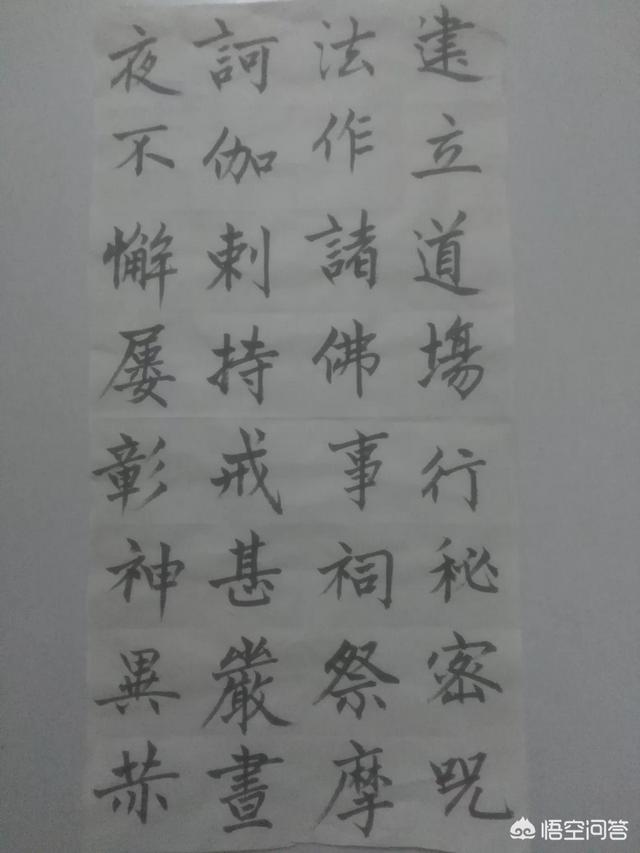 建立道場行秘密咒
法作諸佛事祠祭摩
訶伽剌持戒甚嚴晝
夜不懈屢彰神異恭
悟空问答